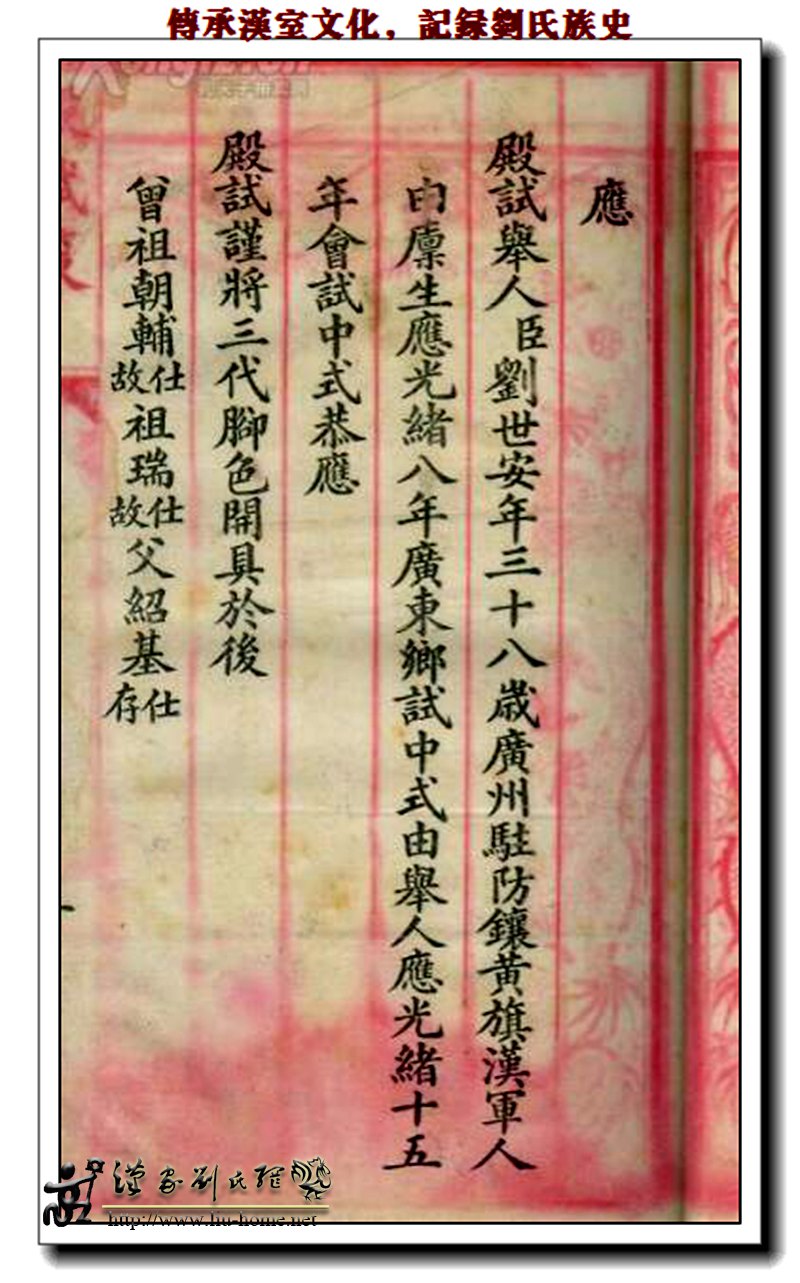 傳承漢室文化，記録劉氏族史
應
殿試舉人臣劉世安年三十八歲廣州駐防鑲黃旗漢軍人
由廪生應光緒八年廣東鄉試中式由舉人應光緒十五
年會試中式恭應
殿試謹將三代腳色開具於後
曾祖朝輔仕故祖瑞仕故父紹基仕存
漢家劉氏網
http://www.liu-home.net